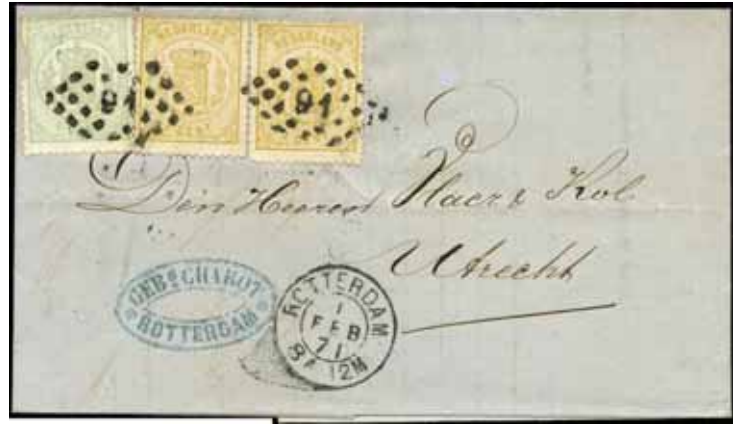 NEDERLAND
NEDERLAND
NEDERLAND
91
91
CENT
Den Heeren Vlaer & Kol
Utrecht
GEBRS CHABOT
ROTTERDAM
ROTTERDAM
1
FEB
71
8A 12M